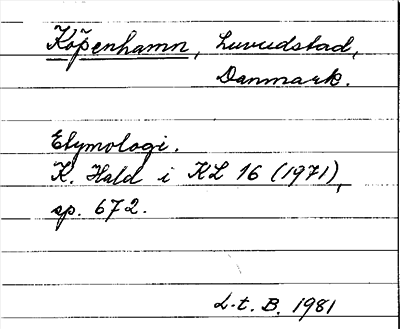 Köpenhamn, huvudstad,
Danmark.
Etymologi.
K. Hald i KL 16 (1971),
sp. 672.
L.t. B. 1981